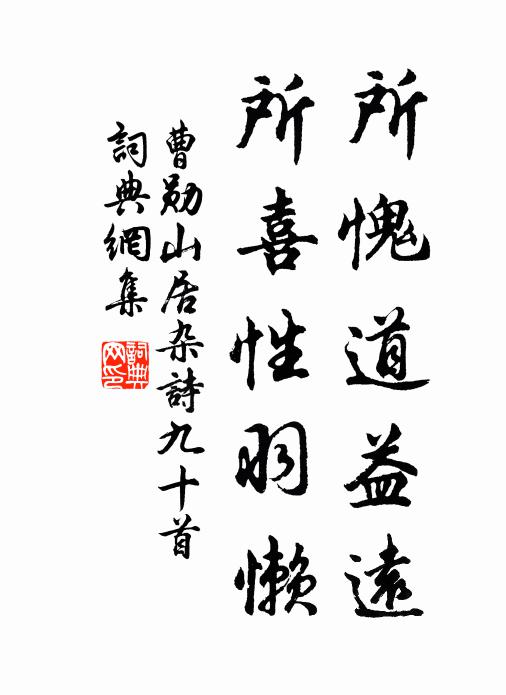 所愧道益遠
所喜性明懶
曹勛山居杂詩九十首
詞典網集
詞典
网印